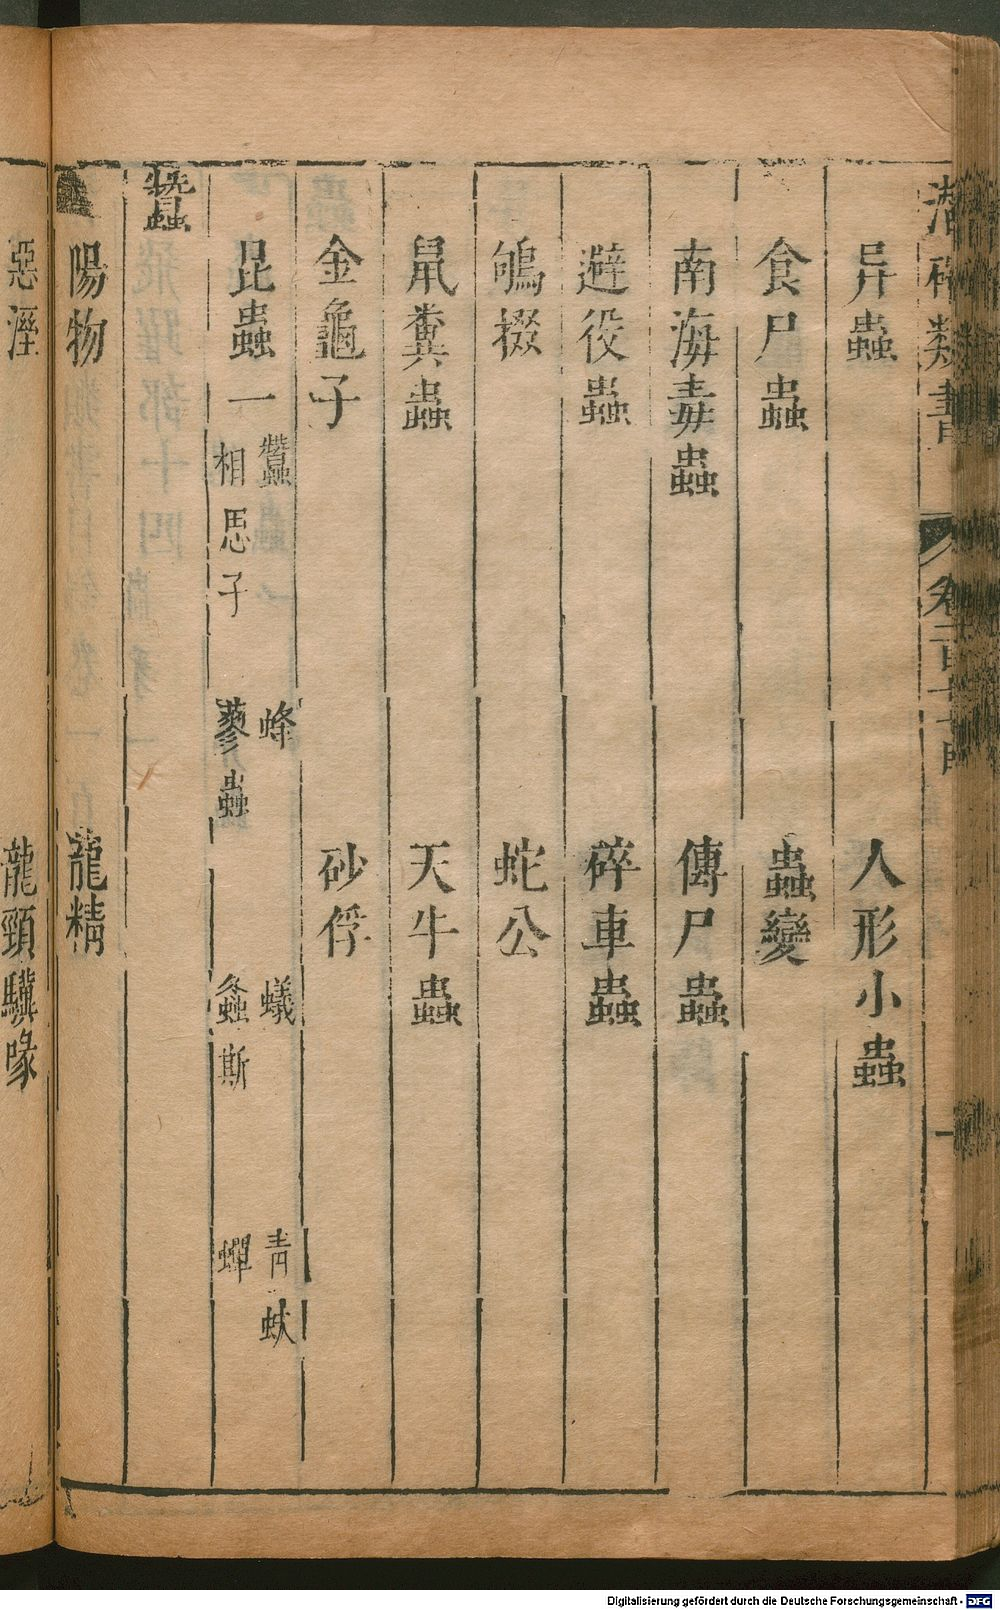 潛確類書 卷一百十七目 一
异蟲 人形小蟲
食尸蟲 蟲變
南海毒蟲 傳尸蟲
避役蟲 碎車蟲
鴝掇 蛇公
鼠糞蟲 天牛蟲
金龜子 砂俘
昆蟲一
蠶 蜂 蟻 青蚨
相思子 蓼蟲 螽斯 蟬
蠶
陽物 龍精
惡溼 龍頸驥喙
Digitalisierung gefördert durch die Deutsche Forschungsgemeinschaft - DFG